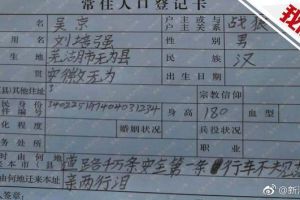 常住人口登记卡
吴京 户主或与户主关系 战狼
用名 刘培强 性别 男
芜湖市无为县 民族 汉
安徽无为 出生日期
其他住址 宗教信仰
340225197404031234 身高 180 血型
化程度 婚姻状况 兵役状况
道路千万条安全第一条 行车不规
亲两行泪
何地迁来本址
@新浪